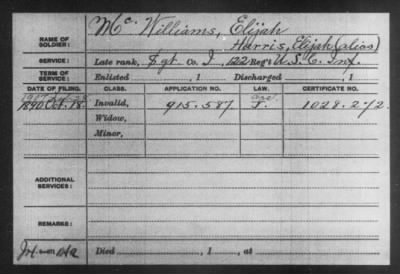 NAME OF SOLDIER: Mc Williams, Elijah
Harris, Elijah (alias)
SERVICE: Late rank, Sgt Co. I, 122 Reg't U.S.C. Inf.
TERM OF SERVICE: Enlisted , 1 Discharged , 1
DATE OF FILING. CLASS. APPLICATION NO. LAW. CERTIFICATE NO.
1890 Oct. 18 Invalid, 915.587 1028.272
Widow,
Minor,
ADDITIONAL SERVICES:
REMARKS:
Died , 1 , at